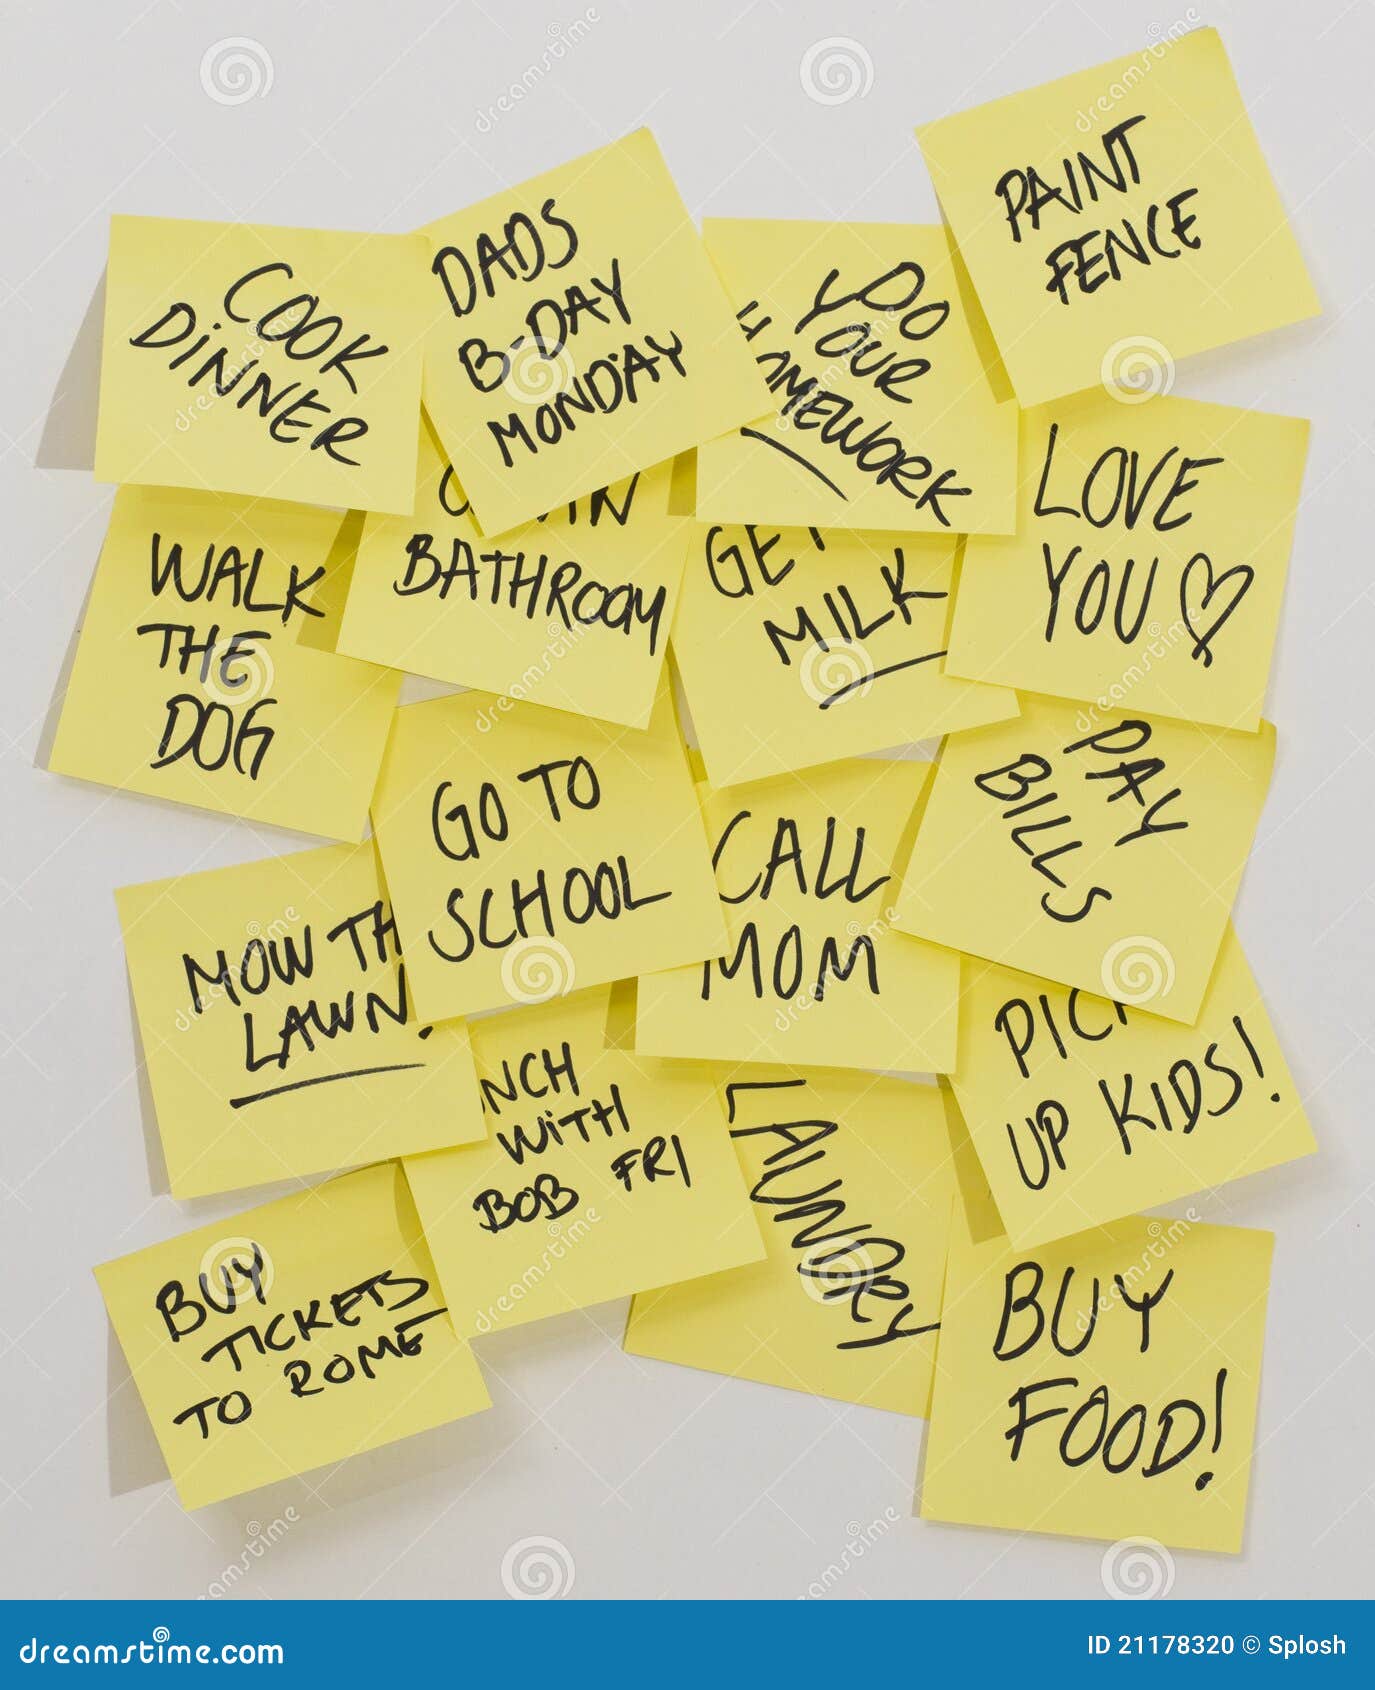 PAINT
FENCE
COOK
DINNER
DADS
B-DAY
MONDAY
DO
YOUR
HOMEWORK
LOVE
YOU
WALK
THE
DOG
BATHROOM
GET
MILK
PAY
BILLS
GO TO
SCHOOL
CALL
MOM
MOW TH
LAWN!
NCH
WITH
BOB FRI
LAUNDRY
PICK
UP KIDS!
BUY
TICKETS
TO ROME
BUY
FOOD!
dreamstime.com
ID 21178320 © Splosh